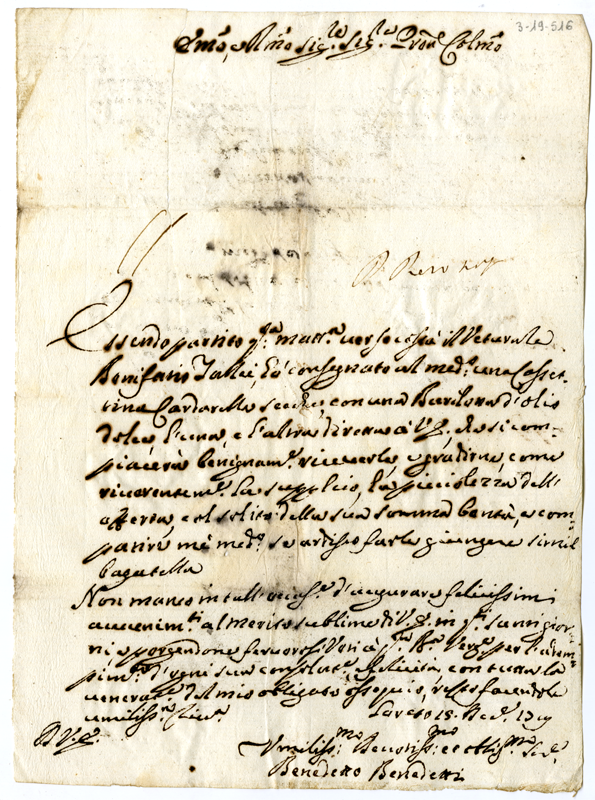 3-19-516
Emo, e Rmo Sig.re Sig.re Pron Colmo
Essendo partito q.ta matt.a verso costà il Veturale
Bonifazio hò consegnato al med.o una Casset-
tina con una d'olio
dolce, l'una, e l'altra diretta à V.E. com-
piacerà benignam.e riceverla, e gradirne, come
riverentem.e la supplico, la picciolezza dell'
offerta, e col solito della sua somma bontà, e com-
patire me med.o se ardisco farle giungere simil
bagatella
Non manco in tall' d'augurare felicissimi
avvenim.ti al merito sublime di V.E. in q.ti santi gior-
ni e porgendone fervorosi Voti à q.ta B.a Verg.e per l'adem-
pim.to d'ogni sua consolat.e, e felicità, con tutta la
venerat.e del mio obligato ossequio, resto facendole
umiliss.a
Loreto 18
D V.E.
Umiliss.mo et obblig.mo
Benedetto Benedetti